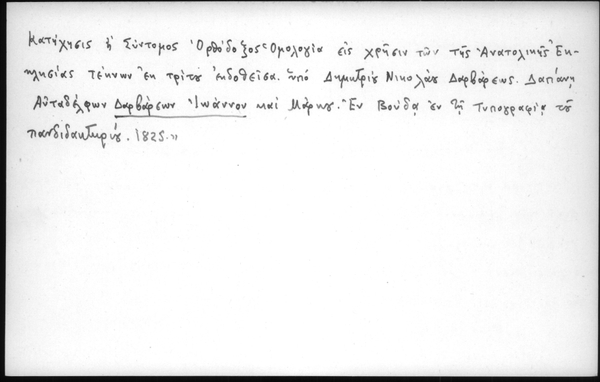 Κατήχησις ἢ Σύντομος Ὀρθόδοξος Ὁμολογία εἰς χρῆσιν τῶν τῆς Ἀνατολικῆς Ἐκ-
κλησίας τέκνων ἐκ τρίτου ἐκδοθεῖσα ὑπό Δημητρίου Νικολάου Δαρβάρεως. Δαπάνῃ
Αὐταδέλφων Δαρβάρεων Ἰωάννου καὶ Μάρκου. Ἐν Βούδᾳ ἐν τῇ Τυπογραφίᾳ τοῦ
πανδιδακτηρίου. 1825.»